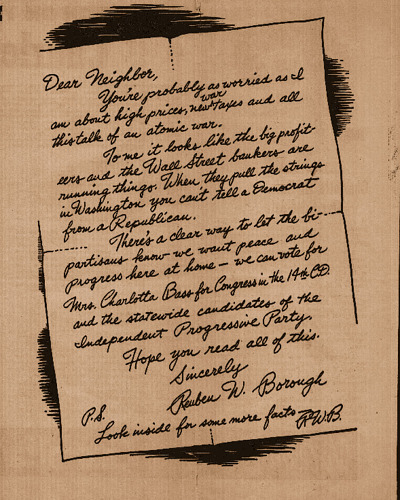 Dear Neighbor,
You're probably as worried as I
am about high prices, new war taxes and all
this talk of an atomic war.
To me it looks like the big profit-
eers and the Wall Street bankers are
running things. When they pull the strings
in Washington you can't tell a Democrat
from a Republican.
There's a clear way to let the bi-
partisans know we want peace and
progress here at home — we can vote for
Mrs. Charlotta Bass for Congress in the 14th C.D.
and the statewide candidates of the
Independent Progressive Party.
Hope you read all of this.
Sincerely
Reuben W. Borough
P.S.
Look inside for some more facts R.W.B.